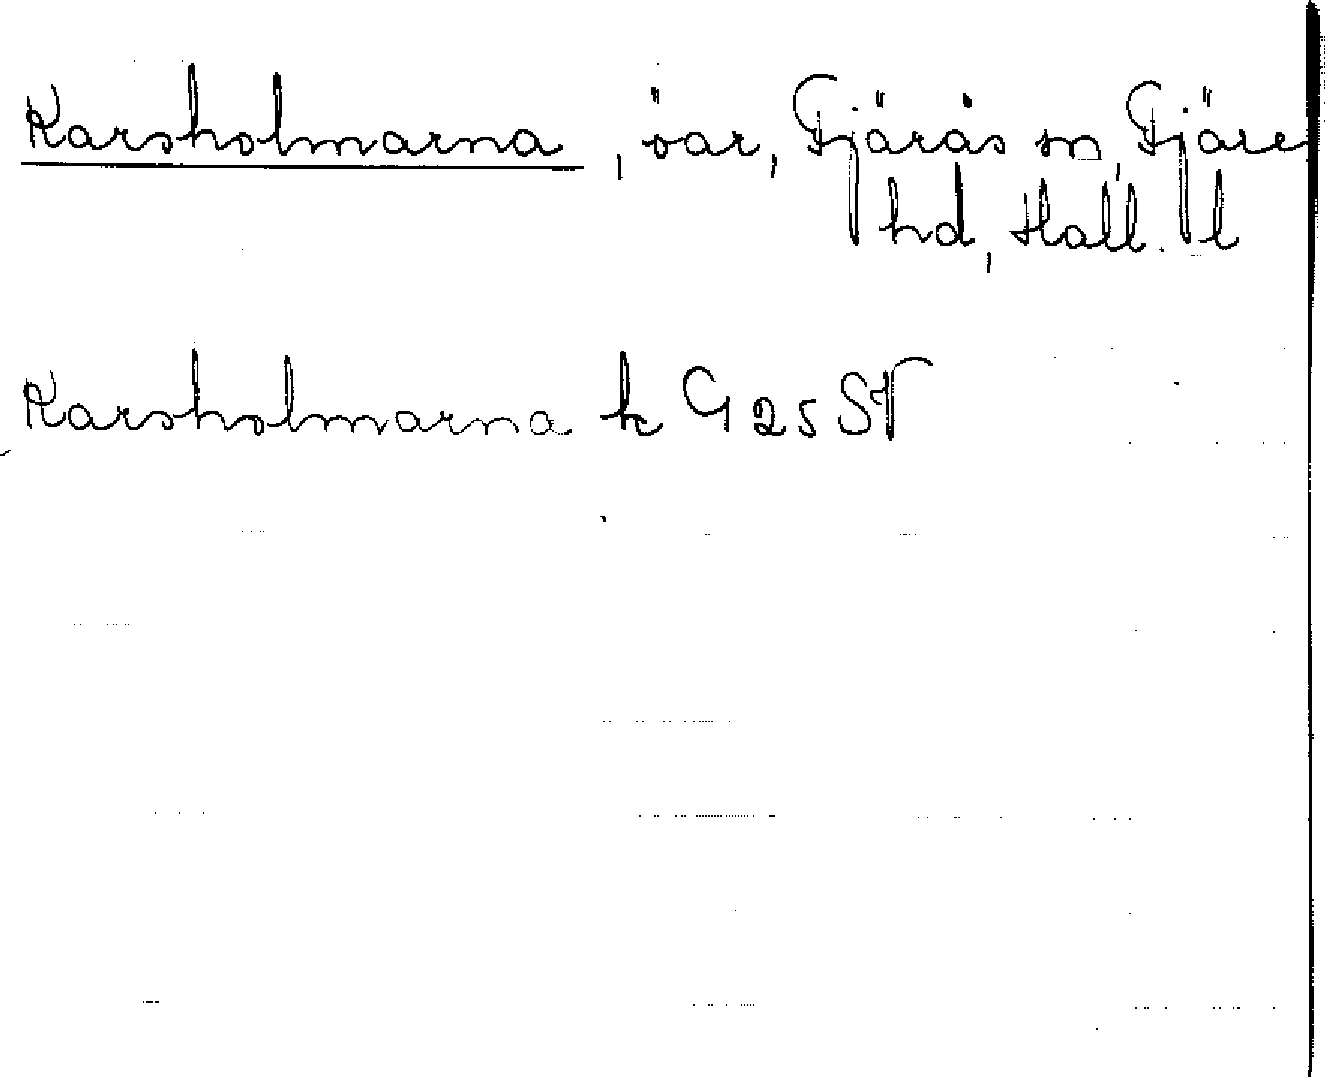 Karsholmarna, öar, Fjärås sn, Fjäre
hd, Hall. l
Karsholmarna k G 25 SV